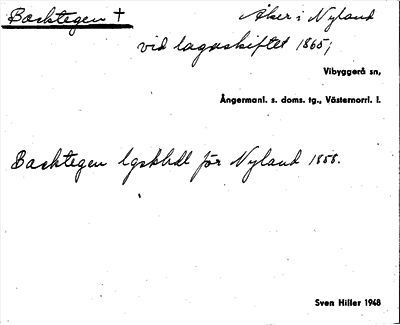 Backtegen † Åker i Nyland
vid lagaskiftet 1865;
Vibyggerå sn,
Ångermanl. s. doms. tg., Västernorrl. l.
Backtegen lgskhdl för Nyland 1858.
Sven Hiller 1948